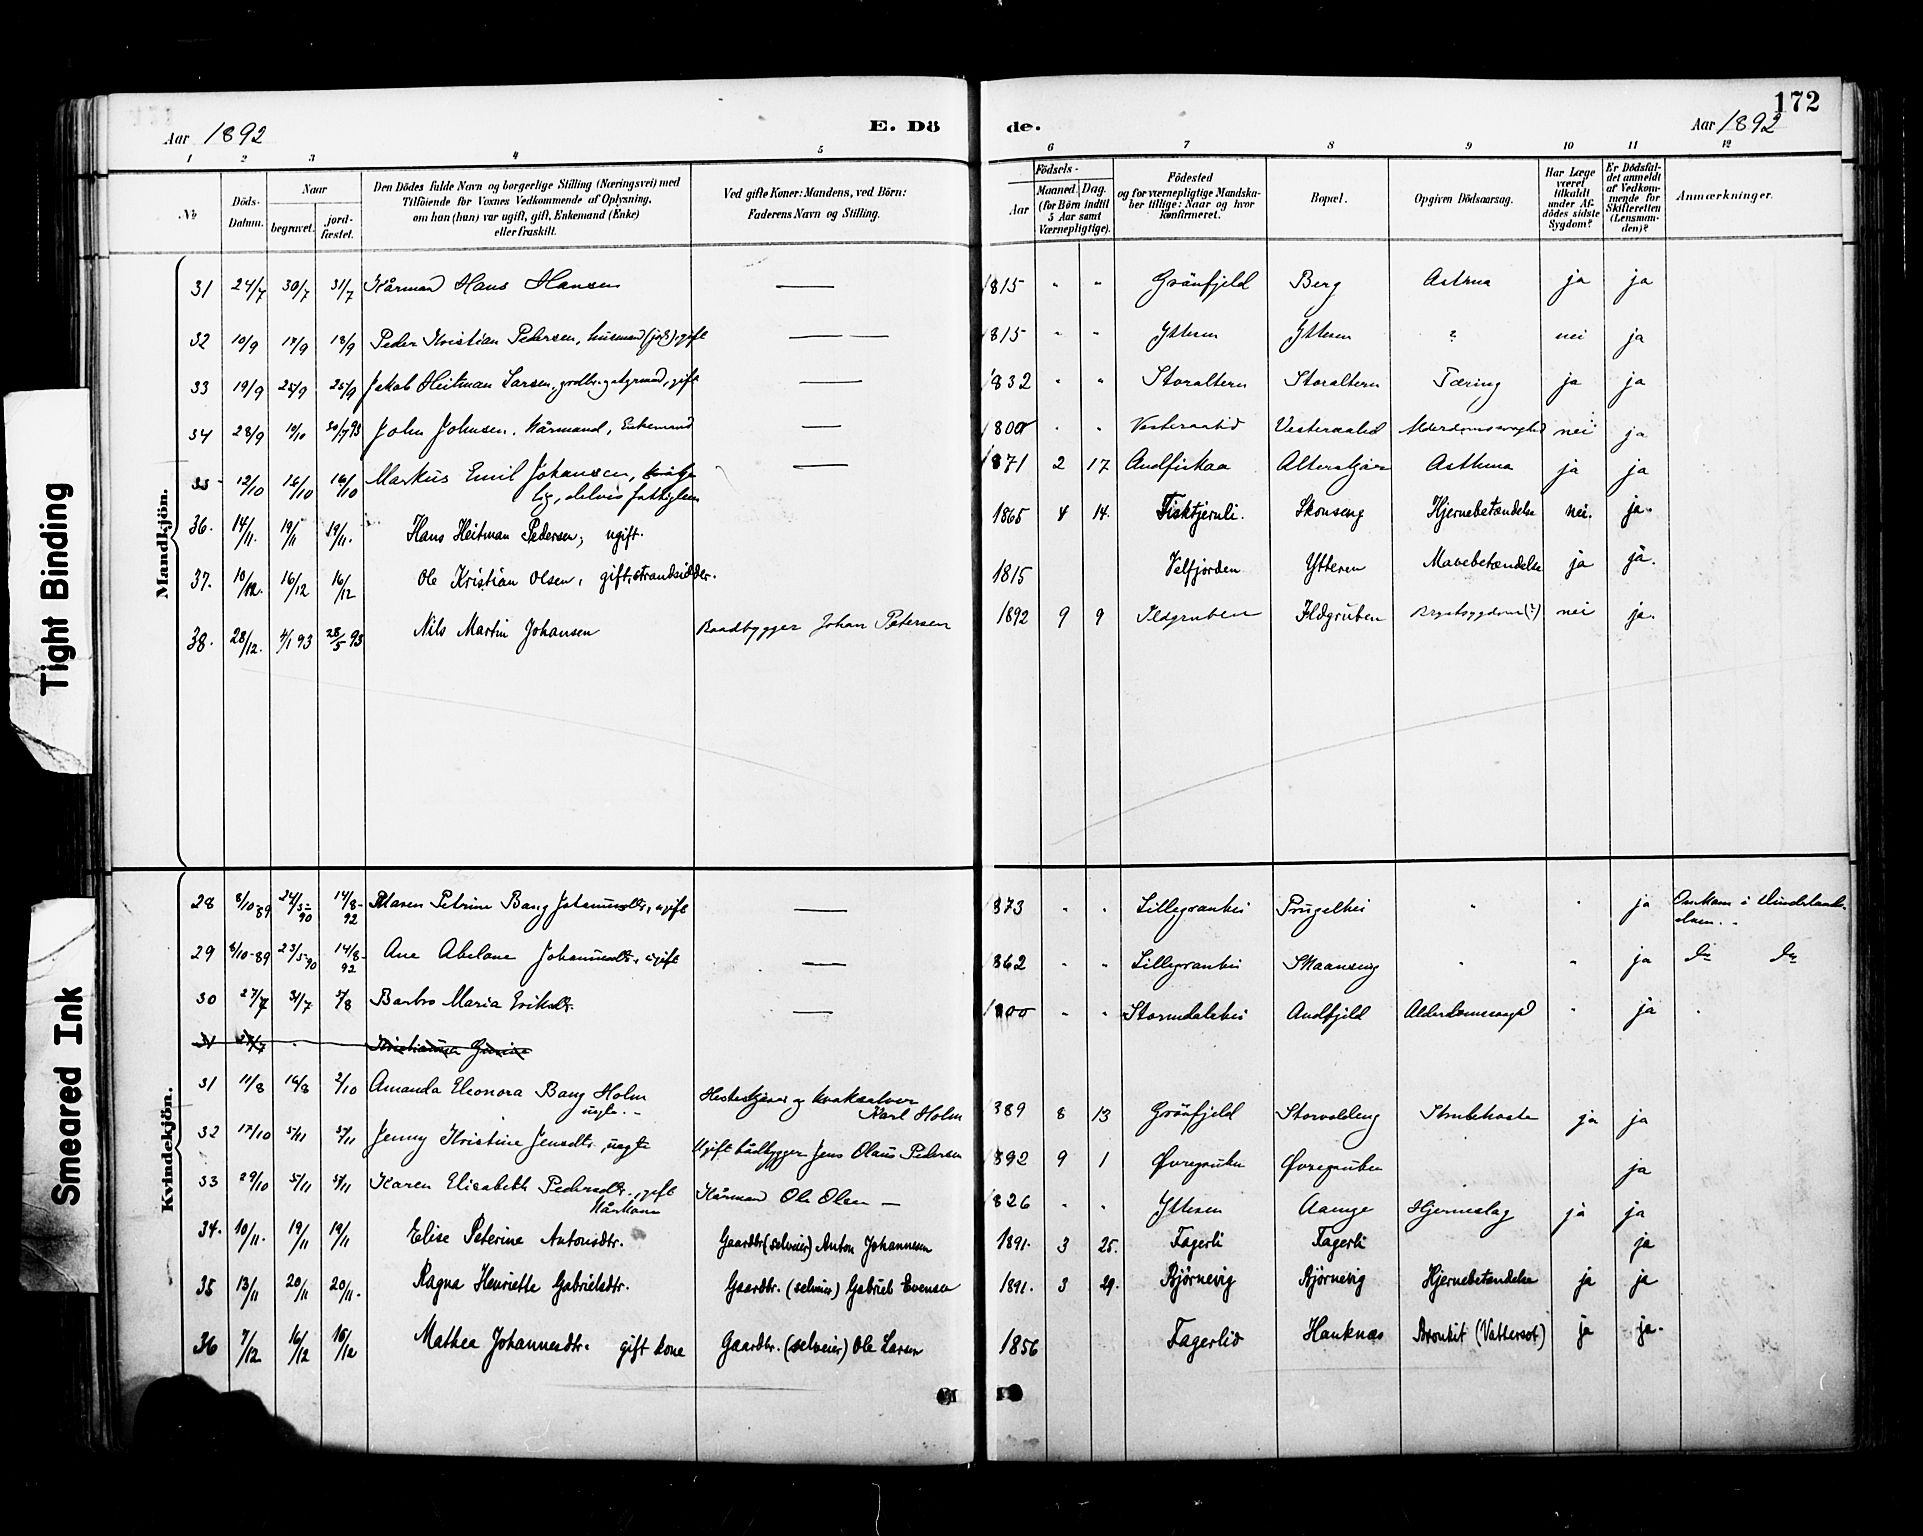 172
Aar 1892
E. Dö
de.
Aar 1892
1 2 3 4 5 6 7 8 9 10 11 12
No
Döds-Datum.
Naar
begravet.
jord-fæstet.
Den Dödes fulde Navn og borgerlige Stilling (Næringsvei) med
Tilföiende for Voxnes Vedkommende af Oplysning,
om han (hun) var ugift, gift, Enkemand (Enke)
eller fraskilt.
Ved gifte Koner: Mandens, ved Börn:
Faderens Navn og Stilling.
Födsels-
Aar
Maaned. Dag.
(for Börn indtil
5 Aar samt
Værnepligtige).
Födested
og for værnepligtige Mandska-
ber tillige: Naar og hvor
konfirmeret.
Bopæl.
Opgiven Dödsaarsag.
Har Læge
været
tilkaldt
under Af-
dödes sidste
Sygdom?
Er Dödsfal-
det anmeldt
af Vedkom-
mende for
Skifteretten
(Lensman-
den)?
Anmærkninger.
Mandkjön.
31 24/7 30/7 31/7 Kårmand Hans Hansen — 1815 " " Grönfjeld Berg Asthma ja ja
32 10/9 18/9 18/9 Peder Kristian Pedersen, husmand (jord), gift — — 1815 " " Ytteren Ytteren ? nei ja
33 19/9 25/9 25/9 Jakob Heitman Larsen, gift — 1832 " " Storalteren Storalteren Tæring ja ja
34 28/9 10/10 30/7 93 John Johnsen, Kårmand, Enkemand — 1800 " " Vesteraalid Vesteraalid Alderdomssvaghed nei ja
35 12/10 16/10 16/10 Markus Emil Johansen,
lig, delvis fattiglem — 1871 2 17 Andfiskaa Alterskjær Asthma ja ja
36. 14/11. 19/11 19/11. Hans Heitman Pedersen; ugift. 1865 4 14. Fisktjernli. Skonseng Hjernebetændelse nei. ja.
37. 10/12. 16/12 16/12 Ole Kristian Olsen, gift, strandsidder. 1815 Velfjorden Ytteren Mavebetændelse ja ja.
38. 28/12. 4/1 93 28/5 93 Nils Martin Johansen Baadbygger Johan Petersen 1892 9 9 Ildgruben Ildgruben Brystsygdom (?) nei ja.
Kvindekjön.
28 8/10-89 24/5-90 14/8-92 Maren Petrine Bang Johannesdtr., ugift — 1873 " " Lillegranhei Prugelhei " " ja Omkom i
29 8/10-89 23/5-90 14/8-92 Ane Abelone Johannesdtr., ugift — 1862 " " Lillegranhei Skaanseng " " ja do do
30 27/7 31/7 5/8 Barbro Maria Eriksdtr. — 1800 " " Stormdalshei Andfjeld Alderdomssvaghed " ja
31 Kristianna
31 11/8 16/8 2/10 Amanda Eleonora Bang Holm
ugte. Hesteskjærer og kvaksalver
Karl Holm 1889 8 13 Grönfjeld Storvoldeng Strubehoste ja ja
32 17/10 5/11 5/11 Jenny Kristine Jensdtr., uegte Ugift baadbygger Jens Olaus Pedersen 1892 9 1 Øvregruben Øvregruben ja
33 29/10 5/11 5/11 Karen Elisabeth Pedersdtr., gift
Kårkone Kårmand Ole Olsen — 1826 " " Ytteren Aamge Hjerneslag ja ja
34. 10/11. 19/11 19/11 Elise Peterine Antonsdtr. Gaardbr. (selveier) Anton Johannesen 1891. 3 25. Fagerli Fagerli ja
35 13/11 20/11 20/11. Ragna Henriette Gabrielsdtr. Gaardbr. (selveier) Gabriel Evensen 1891. 3 29. Bjørnevig Bjørnevig Hjernebetændelse ja ja
36 7/12 16/12 16/12 Mathea Johannesdtr. gift kone Gaardbr. (selveier) Ole Larsen 1856 Fagerlid Hauknæs Bronkit (Vattersot) ja ja.
Tight Binding
Smeared Ink